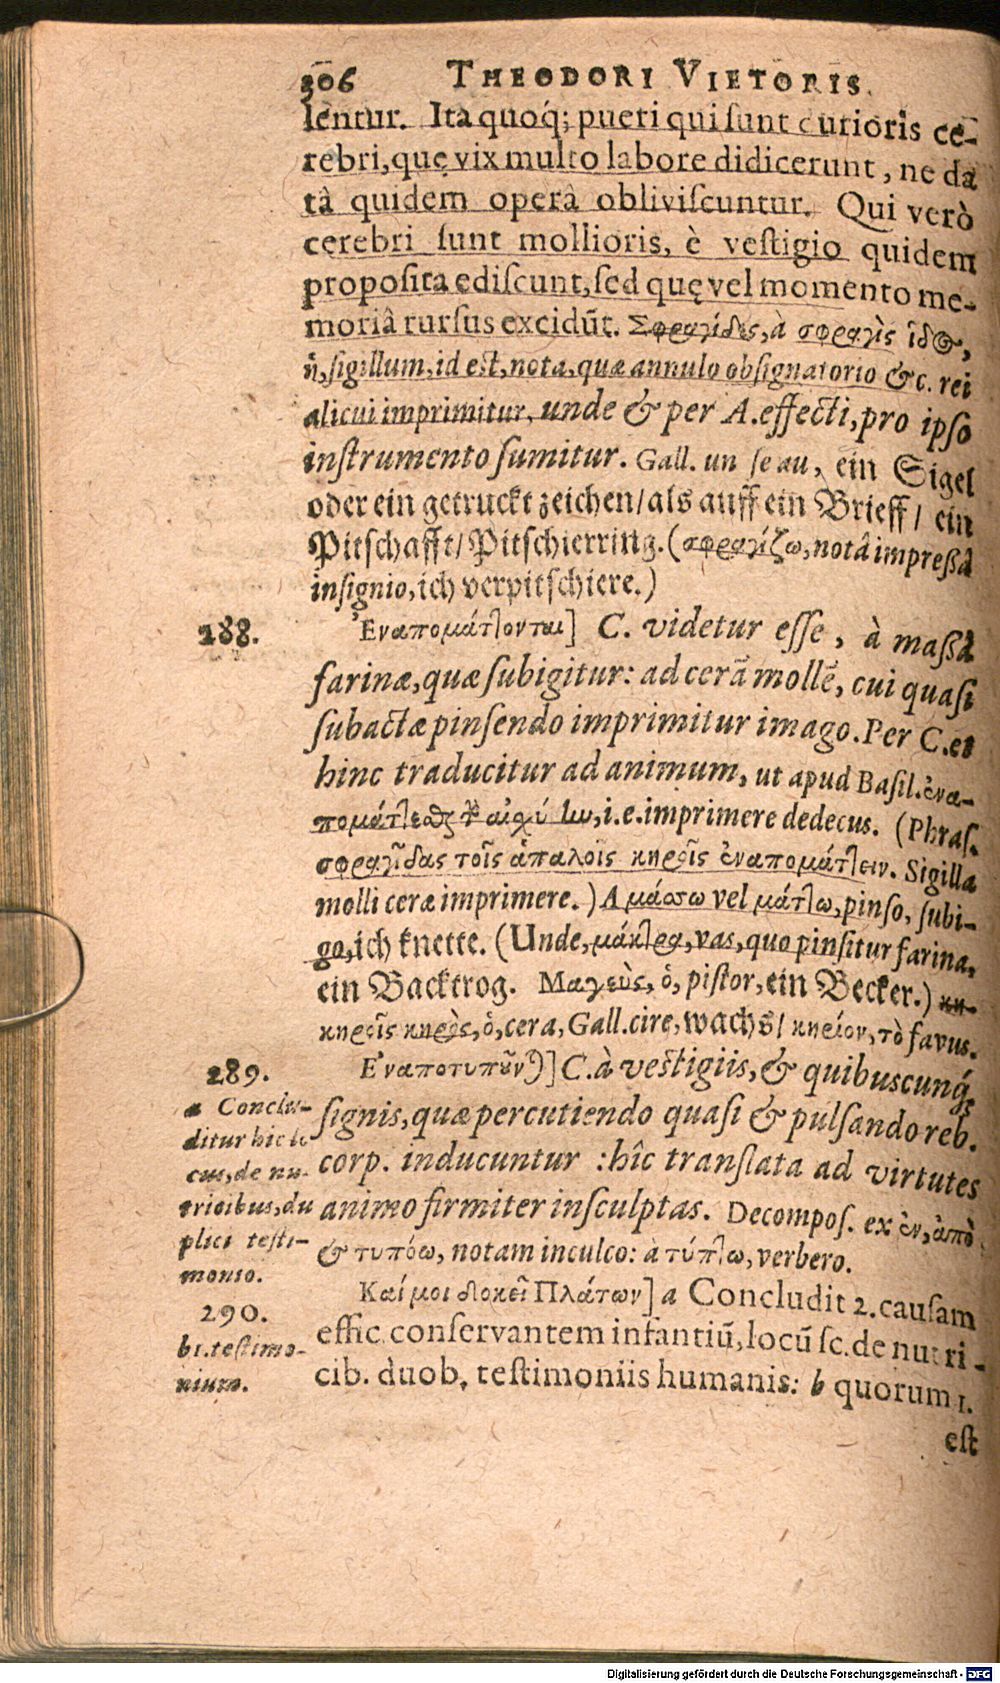 306 THEODORI VIETORIS.
lentur. Ita quoq́; pueri qui ſunt durioris ce-
rebri, quę vix multo labore didicerunt, ne da
tâ quidem operâ obliviſcuntur. Qui verò
cerebri ſunt mollioris, è veſtigio quidem
propoſita ediſcunt, ſed quę vel momento me-
moriâ rursus excidūt. Σφραγίδες, à σφραγὶς ῖδος,
ἡ, ſigillum, id eſt, nota, quæ annulo obſignatorio &c. rei
alicui imprimitur, unde & per A. effecti, pro ipſo
inſtrumento ſumitur. Gall. un ſeau, ein Sigel
oder ein getruckt zeichen/ als auff ein Brieff/ ein
Pitſchafft/ Pitſchierring. (σφραγίζω, notâ impreßâ
inſignio, ich verpitſchiere.)
288. Ἐναπομάττονται] C. videtur eſſe, à maßâ
farinæ, quæ ſubigitur: ad cerā mollē, cui quaſi
ſubactæ pinſendo imprimitur imago. Per C. et
hinc traducitur ad animum, ut apud Baſil. ἐνα-
πομάττεσθαι τὴν αἰσχύνην, i.e. imprimere dedecus. (Phraſ.
σφραγῖδας τοῖς ἁπαλοῖς κηροῖς ἐναπομάττειν. Sigilla
molli ceræ imprimere.) A μάσσω vel μάττω, pinſo, ſubi-
go, ich knette. (Unde, μάκτρα, vas, quo pinſitur farina,
ein Backtrog. Μαγεὺς, ὁ, piſtor, ein Becker.) κη-
κηροῖς κηρὸς, ὁ, cera, Gall. cire, wachs/ κηρίον, τὸ favus.
289. Ἐναποτυποῦνται] C. à veſtigiis, & quibuscunq́,
ſignis, quæ percutiendo quaſi & pulſando reb.
corp. inducuntur: hîc tranſlata ad virtutes
animo firmiter inſculptas. Decompoſ. ex ἐν, ἀπὸ
& τυπόω, notam inculco: à τύπτω, verbero.
a Conclu-
ditur hic lo
cus, de nu-
tricibus, du
plici teſti-
monio.
290. Καί μοι δοκεῖ Πλάτων] a Concludit 2. cauſam
effic. conſervantem infantiū, locū ſc. de nutri-
cib. duob. teſtimoniis humanis: b quorum 1.
b 1. teſtimo-
nium.
eſt
Digitalisierung gefördert durch die Deutsche Forschungsgemeinschaft - DFG